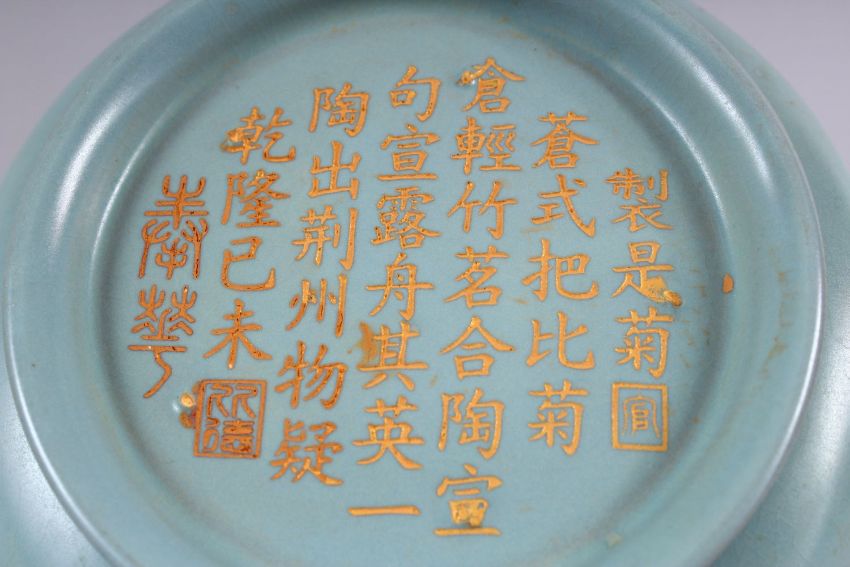 製是菊官
蒼式把比菊
倉輕竹茗合陶宣
句宣露舟其英一
陶出荆州物疑
乾隆己未
華